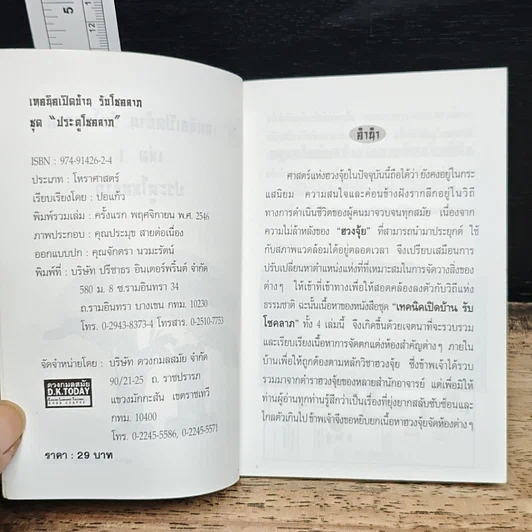 เทคนิคเปิดบ้าน รับโชคลาภ
ชุด "ประตูโชคลาภ"
ISBN : 974-91426-2-4
ประเภท : โหราศาสตร์
เรียบเรียงโดย : ปอแก้ว
พิมพ์รวมเล่ม : ครั้งแรก พฤศจิกายน พ.ศ. 2546
ภาพประกอบ : คุณประมุข สายต่อเนื่อง
ออกแบบปก : คุณจักตรา นวมะรัตน์
พิมพ์ที่ : บริษัท ปรีชาธร อินเตอร์พริ้นต์ จำกัด
580 ม. 8 ซ.รามอินทรา 34
ถ.รามอินทรา บางเขน กทม. 10230
โทร. 0-2943-8373-4 โทรสาร. 0-2510-7753
จัดจำหน่ายโดย : บริษัท ดวงกมลสมัย จำกัด
90/21-25 ถ. ราชปรารภ
แขวงมักกะสัน เขตราชเทวี
กทม. 10400
โทร. 0-2245-5586, 0-2245-5571
ดวงกมลสมัย
D.K.TODAY
ราคา : 29 บาท
คำนำ
ศาสตร์แห่งฮวงจุ้ยในปัจจุบันนี้ถือได้ว่า ยังคงอยู่ในกระ
แสนิยม ความสนใจและค่อนข้างฝังรากลึกอยู่ในวิถี
ทางการดำเนินชีวิตของผู้คนมาจวบจนทุกสมัย เนื่องจาก
ความไม่ล้าหลังของ "ฮวงจุ้ย" ที่สามารถนำมาประยุกต์ ใช้
กับสภาพแวดล้อมได้อยู่ตลอดเวลา จึงเปรียบเสมือนการ
ปรับเปลี่ยนหาตำแหน่งแห่งที่ที่เหมาะสมในการจัดวางสิ่งของ
ต่างๆ ให้เข้าที่เข้าทางเพื่อให้สอดคล้องลงตัวกับวิถีแห่ง
ธรรมชาติ ฉะนั้นเนื้อหาของหนังสือชุด "เทคนิคเปิดบ้าน รับ
โชคลาภ" ทั้ง 4 เล่มนี้ จึงเกิดขึ้นด้วยเจตนาที่จะรวบรวม
และเรียบเรียงเนื้อหาการจัดตกแต่งห้องสำคัญต่างๆ ภายใน
บ้านเพื่อให้ถูกต้องตามหลักวิชาฮวงจุ้ย ซึ่งข้าพเจ้าได้รวบ
รวมมาจากตำราฮวงจุ้ยของหลายสำนักอาจารย์ แต่เพื่อมิให้
ท่านผู้อ่านทุกท่านรู้สึกว่าเป็นเรื่องที่ยุ่งยากสลับซับซ้อนและ
ไกลตัวเกินไป ข้าพเจ้าจึงขอหยิบยกเนื้อหาฮวงจุ้ยจัดห้องต่างๆ